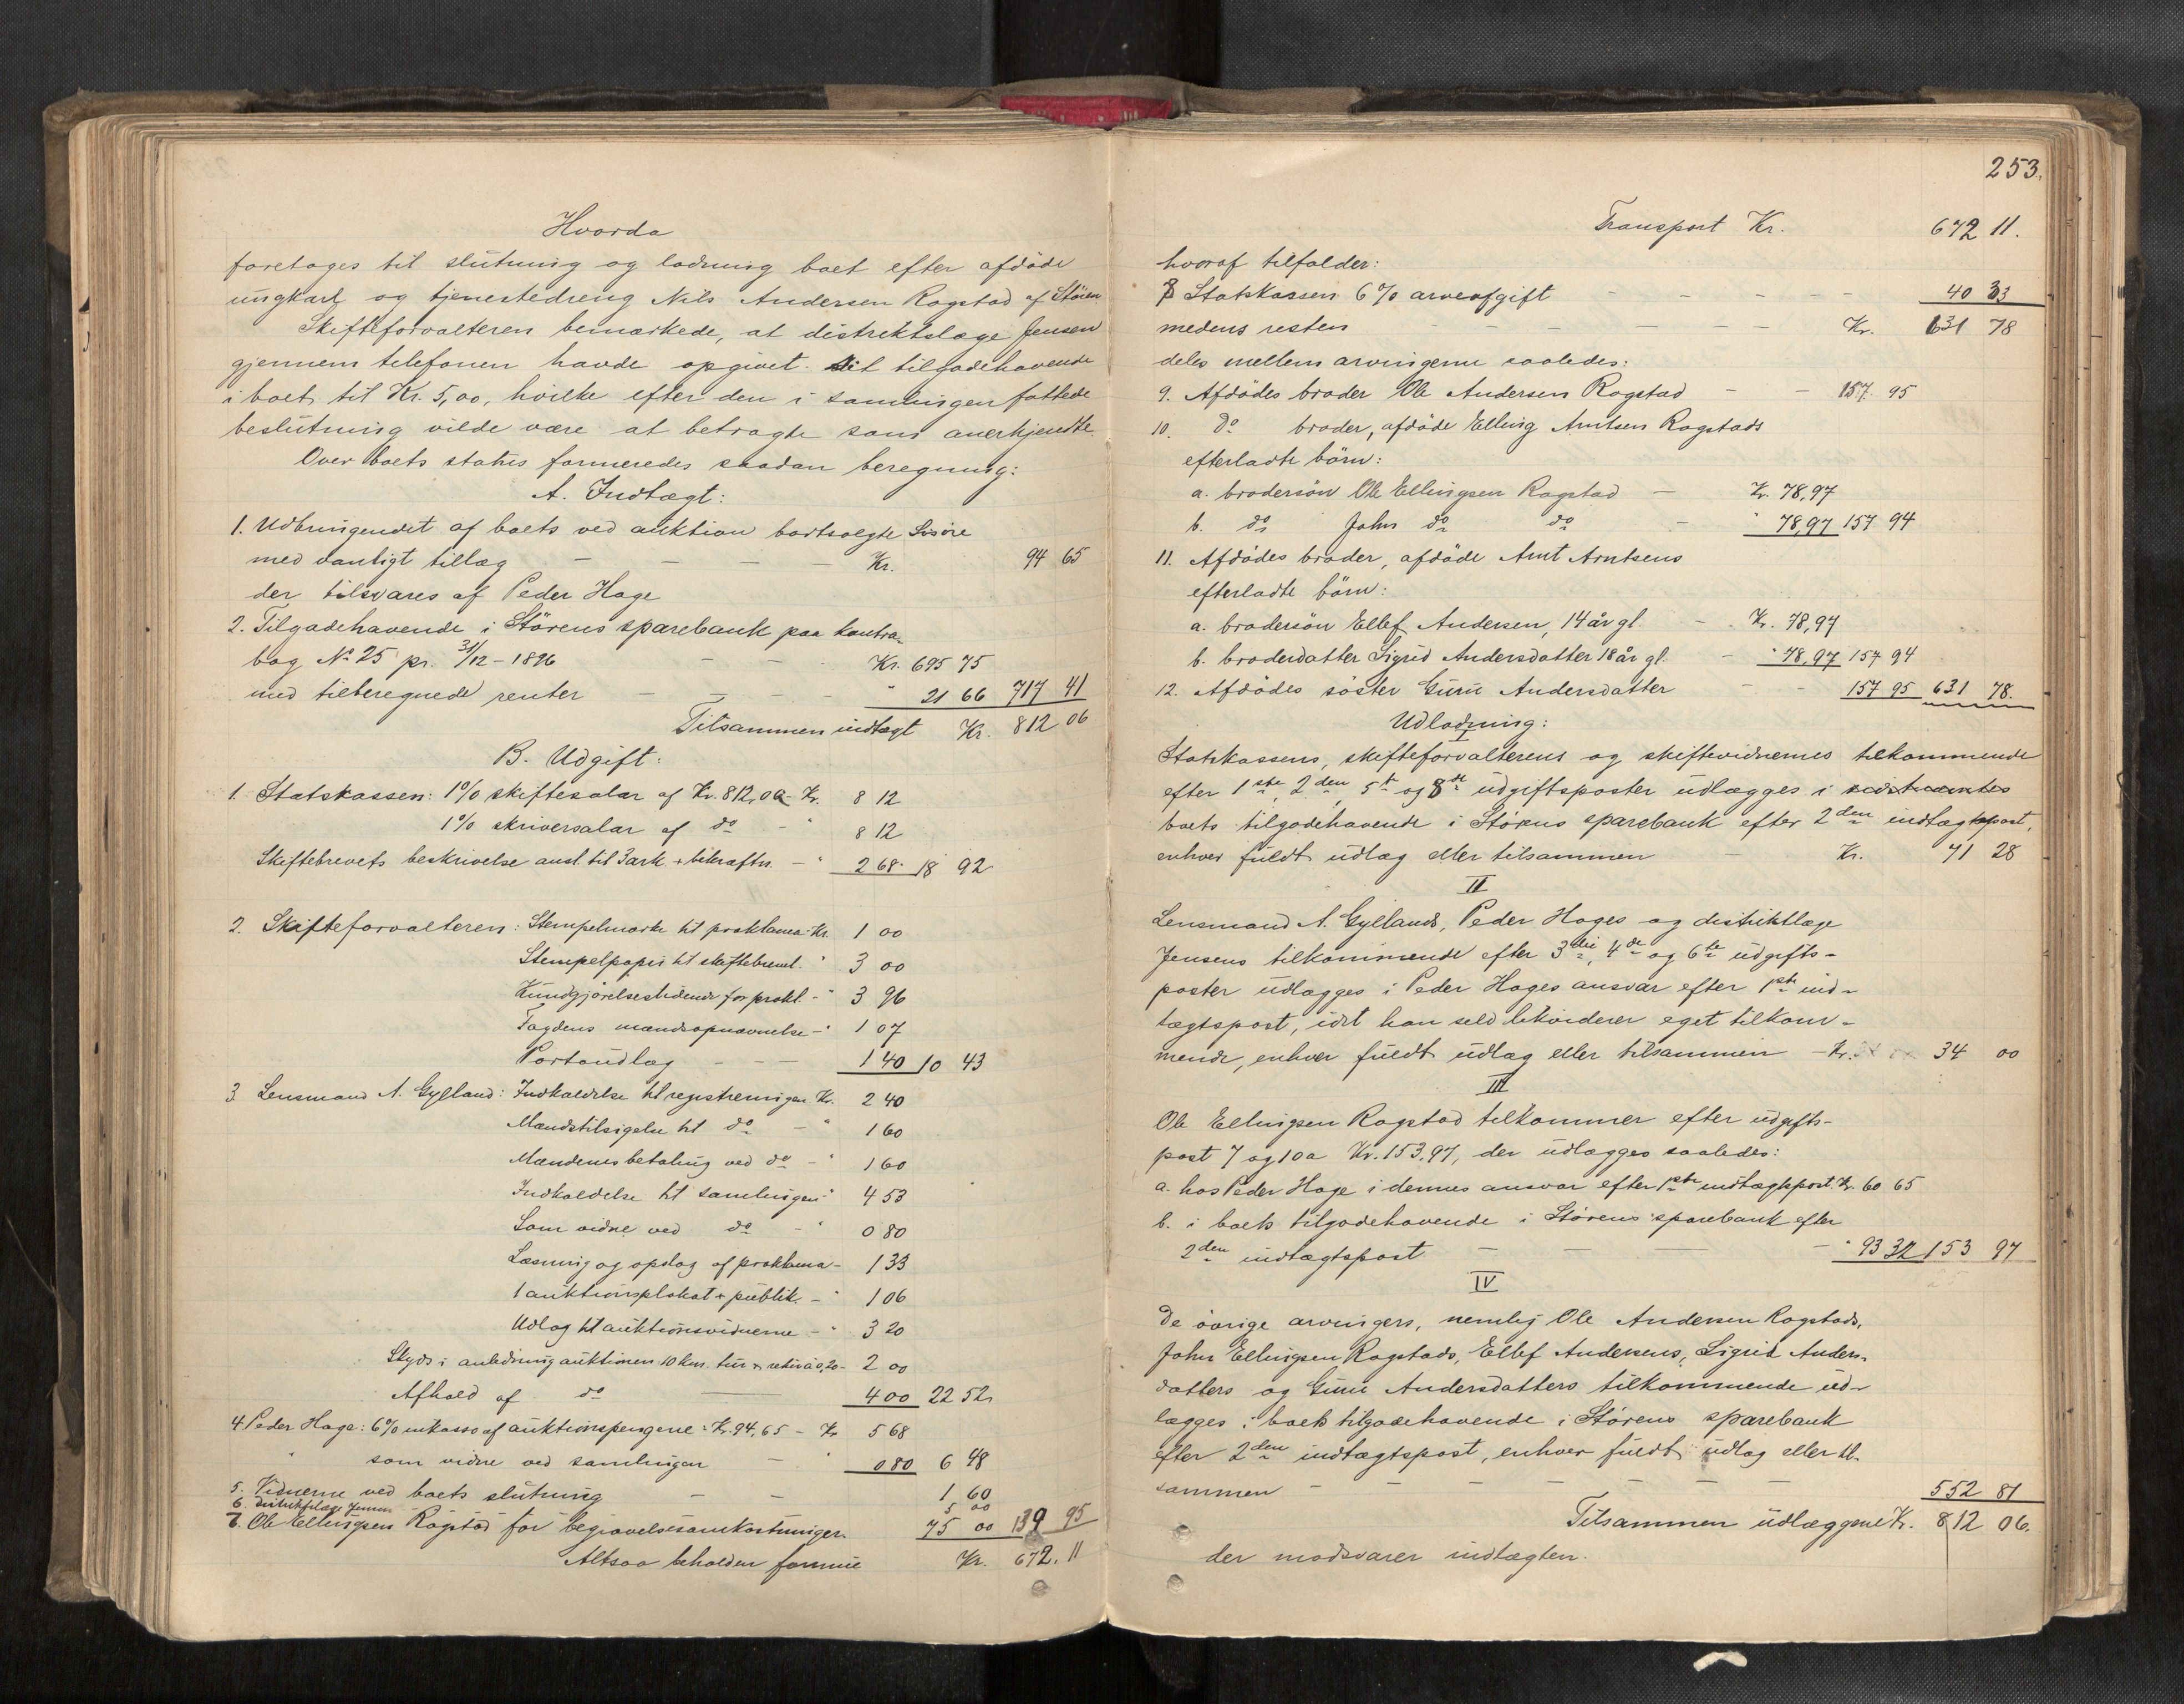 Hvorda
foretages til slutning og lodning boet efter afdöde
ungkarl og tjenestedreng Nils Andersen Rogstad af Stören.
Skifteforvalteren bemærkede, at distriktslæge Jensen
gjennem telefonen havde opgivet sit tilgodehavende
i boet til Kr. 5,00, hvilke efter den i samlingen fattede
beslutning vilde være at betragte som anerkjendte.
Over boets status formeredes saadan beregning:
A. Indtægt:
1. Udbringendet af boets ved auktion bortsolgte Lösöre
med vanligt tillæg — — — — Kr. 94 65
der tilsvares af Peder Hage
2. Tilgodehavende i Störens sparebank paa kontra-
bog No 25 pr. 31/12 - 1896 — — — Kr. 695 75
med tilberegnede renter — — — — " 21 66 717 41
Tilsammen indtægt Kr. 812 06
B. Udgift:
1. Statskassen: 1% skiftesalær af Kr. 812,06 - Kr. 8 12
1% skriversalær af do - " 8 12
Skiftebrevets beskrivelse ansl. til 3 ark + bekræftn. - " 2 68 18 92
2. Skifteforvalteren: Stempelmærke til proklama - Kr. 1 00
Stempelpapir til skiftebrevet. " 3 00
Kundgjörelsestidende for prokl. - " 3 96
Fogdens mændsopnævnelse - " 1 07
Portoudlæg — — — 1 40 10 43
3. Lensmand A. Gylland: Indkaldelse til registreringen Kr. 2 40
Mændstilsigelse til do — " 1 60
Mændenes betaling ved do - " 1 60
Indkaldelse til samlingen " 4 53
Som vidne ved do - " 0 80
Læsning og opslag af proklama - 1 33
1 auktionsplakat + publik. - " 1 06
Udlæg til auktionsvidnerne - " 3 20
Skyds i anledning auktionen 10 km. tur + retur à 0,20 - 2 00
Afhold af do — 4 00 22 52
4. Peder Hage: 6% inkasso af auktionspengene: Kr. 94,65 - Kr. 5 68
" som vidne ved samlingen — " 0 80 6 48
5. Vidnerne ved boets slutning — — 1 60
6. Distriktslæge Jensen 5 00
7. Ole Ellingsen Rogstad for begravelsesomkostninger. 75 00 139 95
Altsaa beholden formue Kr. 672. 11
253.
Transport Kr. 672 11.
hvoraf tilfalder:
8 Statskassen 6% arveafgift — — — — — 40 33
medens resten — — — — — — Kr. 631 78
deles mellem arvingerne saaledes:
9. Afdödes broder Ole Andersen Rogstad — — 157 95
10. do broder, afdöde Elling Arntsen Rogstads
efterladte börn:
a. brodersön Ole Ellingsen Rogstad — Kr. 78,97
b. do John do do — " 78,97 157 94
11. Afdödes broder, afdöde Arnt Arntsens
efterladte börn:
a. brodersön Ellef Andersen, 14 år gl. — Kr. 78,97
b. broderdatter Sigrid Andersdatter 18 år gl. — " 78,97 157 94
12. Afdödes söster Guru Andersdatter — — 157 95 631 78.
Udlodning:
I
Statskassens, skifteforvalterens og skiftevidnernes tilkommende
efter 1ste, 2den, 5te og 8de udgiftsposter udlægges i
boets tilgodehavende i Störens sparebank efter 2den indtægtspost,
enhver fuldt udlæg eller tilsammen — Kr. 71 28
II
Lensmand A. Gyllands, Peder Hages og distriktslæge
Jensens tilkommende efter 3die, 4de og 6te udgifts-
poster udlægges i Peder Hages ansvar efter 1ste ind-
tægtspost, idet han selv likviderer eget tilkom-
mende, enhver fuldt udlæg eller tilsammen - Kr. 34 00
III
Ole Ellingsen Rogstad tilkommer efter udgifts-
post 7 og 10a Kr. 153,97, der udlægges saaledes:
a. hos Peder Hage i dennes ansvar efter 1ste indtægtspost. Kr. 60 65
b. i boets tilgodehavende i Störens sparebank efter
2den indtægtspost — — — — " 93 32 153 97
IV
De övrige arvingers, nemlig Ole Andersen Rogstads,
John Ellingsen Rogstads, Ellef Andersens, Sigrid Anders-
datters og Guru Andersdatters tilkommende ud-
lægges i boets tilgodehavende i Störens sparebank
efter 2den indtægtspost, enhver fuldt udlæg eller til-
sammen — — — — — — — 552 81
Tilsammen udlæggene Kr. 812 06.
der modsvarer indtægten.